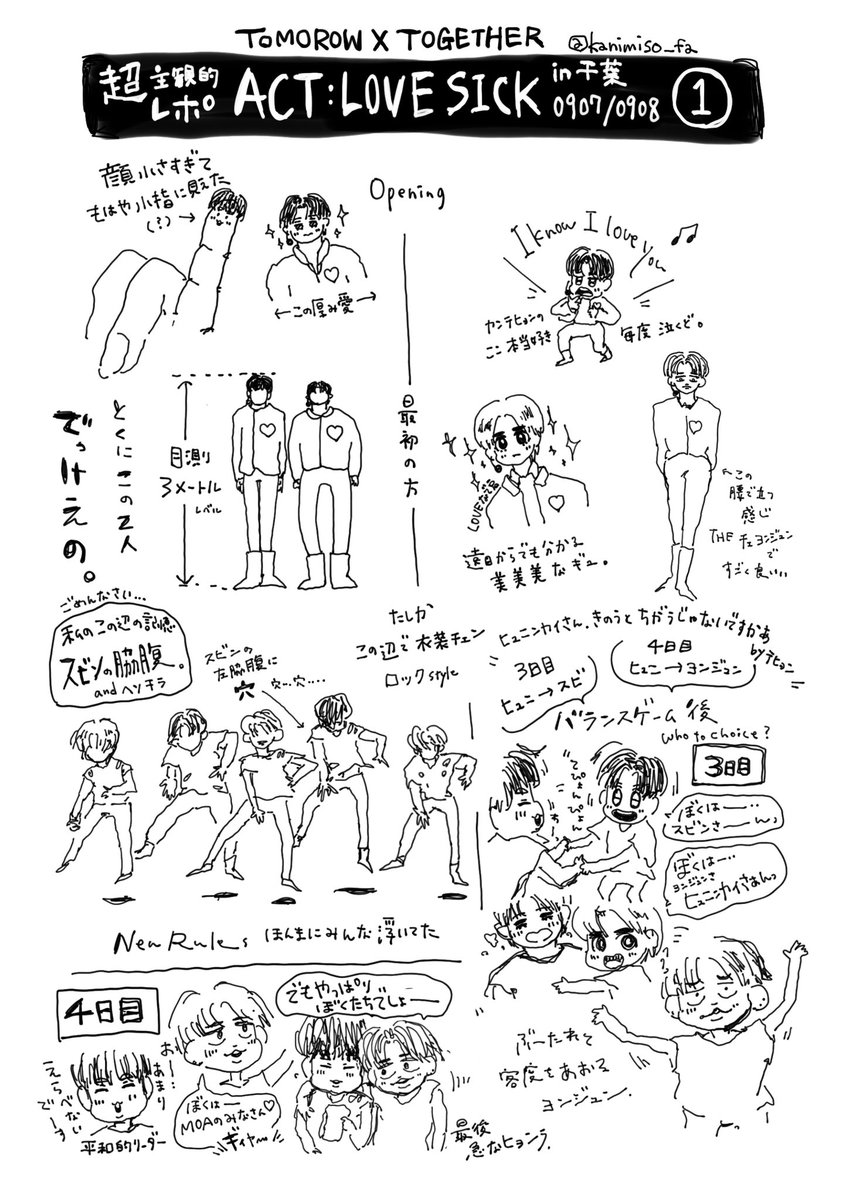 TOMOROW X TOGETHER
@kanimiso_fa
超主観的
レポ
ACT:LOVE SICK
in千葉
0907/0908
①
顔小さすぎて
もはや小指に見えた
(?)→
←この厚み愛→
Opening
I know I love you
カンテヒョンの
ここ本当好き
毎度泣くど。
とくにこの2人
でっけえの。
目測り
3メートル
レベル
最初の方
LOVEなどる
遠目からでも分かる
美美美なギュ。
この
腰で立つ
感じ
THE チェヨンジュン
で
すごく良いい
ごめんなさい…
私のこの辺の記憶
スビンの脇腹。
andヘソチラ
スビンの
左脇腹に
穴
穴…穴…
たしか
この辺で衣装チェン
ロックstyle
ヒュニンカイさん、きのうとちがうじゃないですかあ
byテヒョン
3日目
ヒュニ→スビ
4日目
ヒュニ→ヨンジュン
バランスゲーム後
who to choice?
3日目
てぴょんぴょん
ぼくはー…
スビンさーんっ
ぼくはー…
ヨンジュンさ
ヒュニンカイさぁんっ
New Rules ほんまにみんな浮いてた
ぶーたれて
客席をあおる
ヨンジュン.
4日目
おー…
あまり
えらべない
でーす
平和的リーダー
ぼくはー
MOAのみなさん♡
ギィヤー
でもやっぱり
ぼくたちでしょー
最後
急なヒョンラ.